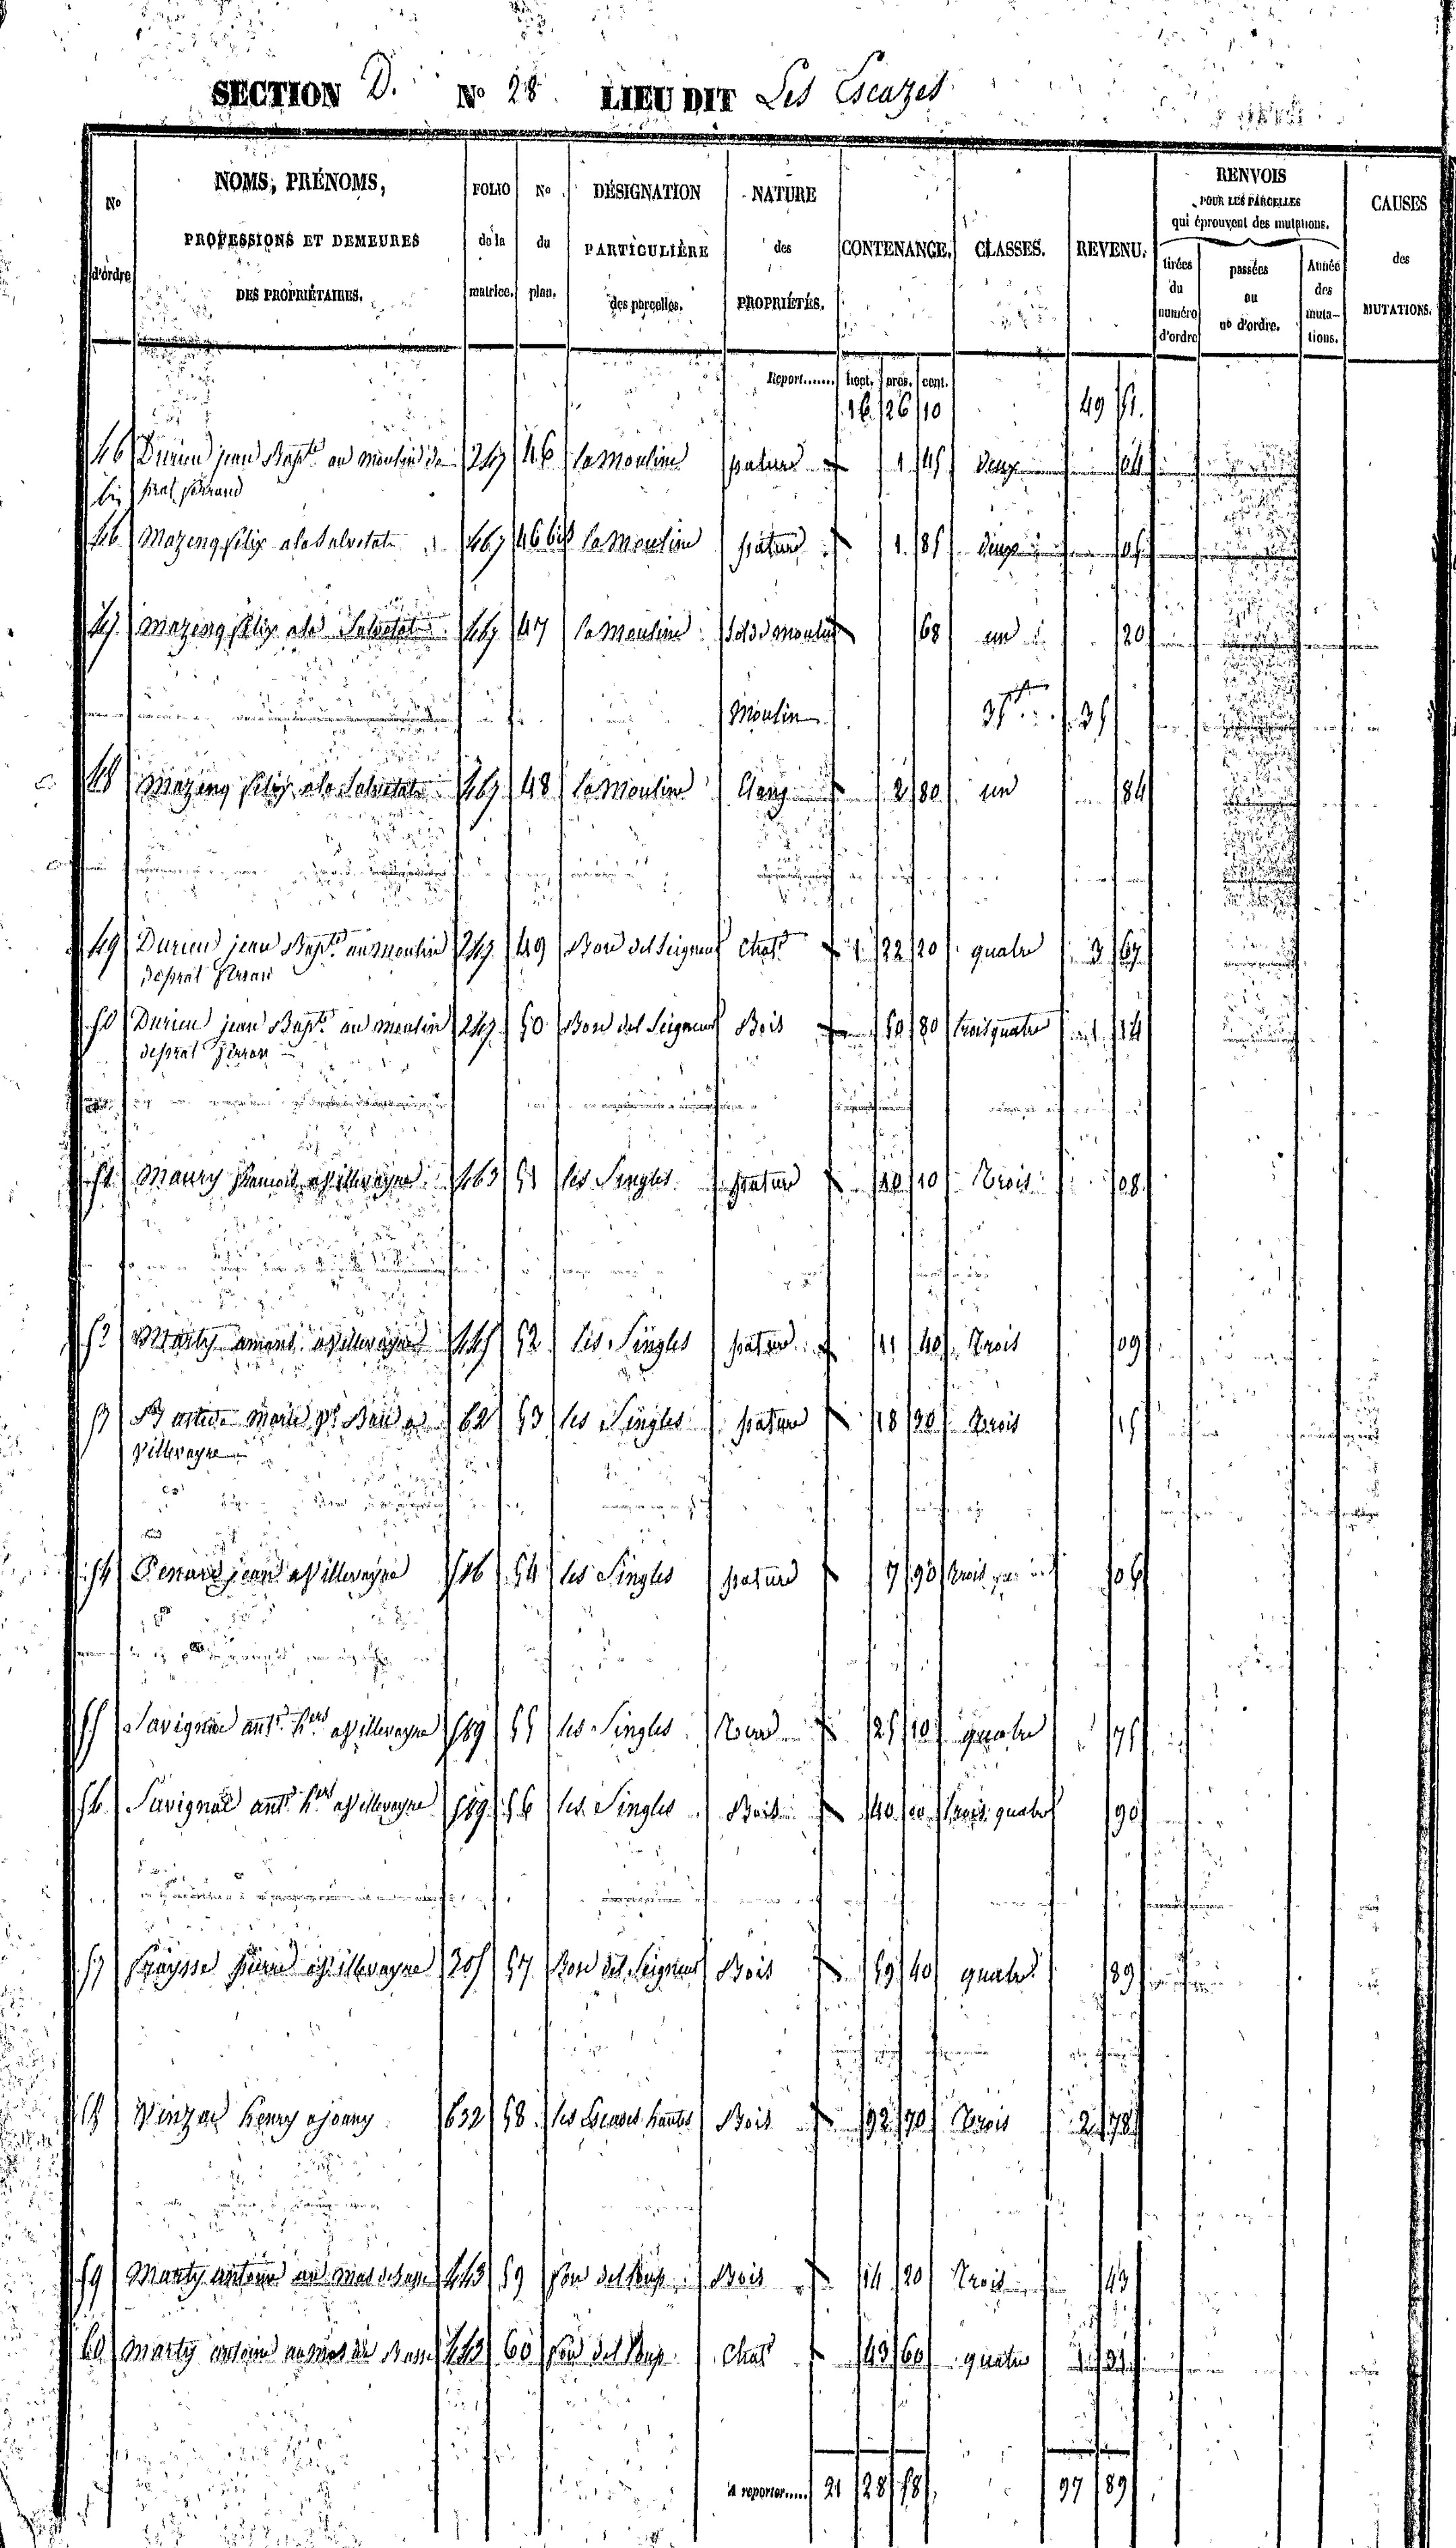 SECTION D. No 28. LIEU DIT Les Escazes
No d'ordre
NOMS, PRÉNOMS, PROFESSIONS ET DEMEURES DES PROPRIÉTAIRES.
FOLIO de la matrice.
No du plan.
DÉSIGNATION PARTICULIÈRE des parcelles.
NATURE des PROPRIÉTÉS.
CONTENANCE.
CLASSES.
REVENU.
RENVOIS POUR LES PARCELLES qui éprouvent des mutations.
tirées du numéro d'ordre
passées au no d'ordre.
Année des mutations.
CAUSES des MUTATIONS.
Report....... hect. ares. cent.
16 26 10 49 51.
46 Durieu jean Bapte au moulin de 247 46 la Mouline pature 1 45 deux 04
bis prat ferrand
46 Mazenq felix a la Salvetat 467 46 bis la Mouline pature 1 85 deux 05
47 Mazenq felix a la Salvetat 467 47 la Mouline Sol de moulin 68 un 20
Moulin 35
48 Mazenq felix a la Salvetat 467 48 la Mouline Etang 2 80 un 84
49 Durieu jean Bapte au moulin 247 49 Bosc del Seigneur Chat. 1 22 20 quatre 3 67
de prat ferran
50 Durieu jean Bapte au moulin 247 50 Bosc del Seigneur Bois 50 80 trois quatre 1 14
de prat ferran
51 Maury francois a Villevayre 463 51 les Singles pature 10 10 Trois 08
52 Marty amans a Villevayre 445 52 les Singles pature 11 40 Trois 09
53 Bastide Marie 62 53 les Singles pature 18 20 Trois 15
Villevayre
54 jean a Villevayre 516 54 les Singles pature 7 90 trois 06
55 Savignac ant. hers a Villevayre 589 55 les Singles Terre 25 10 quatre 75
56 Savignac ant. hers a Villevayre 589 56 les Singles Bois 40 00 trois quatre 90
57 fraysse pierre a Villevayre 305 57 Bosc del Seigneur Bois 59 40 quatre 89
58 Vinzac henry a jouny 632 58 les Escazes hautes Bois 92 70 Trois 2 78
59 Marty antoine au mas de 443 59 fon del Bois 14 20 Trois 43
60 Marty antoine au mas de 443 60 fon del Chat 43 60 quatre 1 31
A reporter..... 21 28 58 97 89